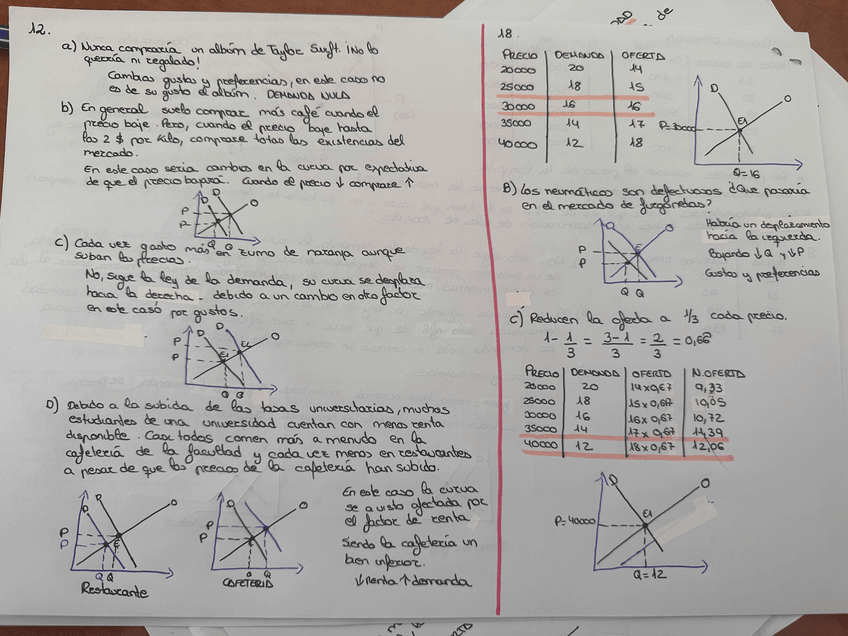 12.
a) Nunca compraría un albúm de Taylor Swift. ¡No lo
querría ni regalado!
Cambias gustos y preferencias, en este caso no
es de su gusto el albúm. DEMANDA NULA
b) En general suelo comprar más café cuando el
precio baje. Pero, cuando el precio baje hasta
los 2 $ por Kilo, comprare totas las existencias del
mercado.
En este caso seria cambios en la curva por expectativa
de que el precio bajará. Cuando el precio ↓ comprare ↑
D D O
P
P
Q Q
c) Cada vez gasto más en zumo de naranja aunque
suban los precios.
No, sigue la ley de la demanda, su curva se desplaza
hacia la derecha - debido a un cambio en otro factor
en este caso por gustos.
D D O
P
P
E1 E2
Q Q
D) Debido a la subida de las tasas universitarias, muchos
estudiantes de una universidad cuentan con menos renta
disponible. Casi todos comen más a menudo en la
cafetería de la facultad y cada vez menos en restaurantes
a pesar de que los precios de la cafetería han subido.
D D O
P
P
E
Q Q
Restaurante
D O
P
P
E
Q Q
CAFETERIA
En este caso la curva
se a visto afectada por
el factor de renta
Siendo la cafetería un
bien inferior.
↓renta ↑demanda
18.
PRECIO DEMANDA OFERTA
20000 20 14
25000 18 15
30000 16 16
35000 14 17
40000 12 18
D O
P=30000
E1
Q=16
B) Los neumáticos son defectuosos ¿Que pasaría
en el mercado de furgonetas?
D O
P
P
E
Q Q
Habría un desplazamiento
hacia la izquierda.
Bajando ↓Q y ↓P
Gustos y preferencias
C) Reducen la oferta a 1/3 cada precio.
1 - 1/3 = 3-1/3 = 2/3 = 0,66
PRECIO DEMANDA OFERTA N.OFERTA
20000 20 14x0,67 9,33
25000 18 15x0,67 10,05
30000 16 16x0,67 10,72
35000 14 17x0,67 11,39
40000 12 18x0,67 12,06
D O
P=40000
E1
Q=12